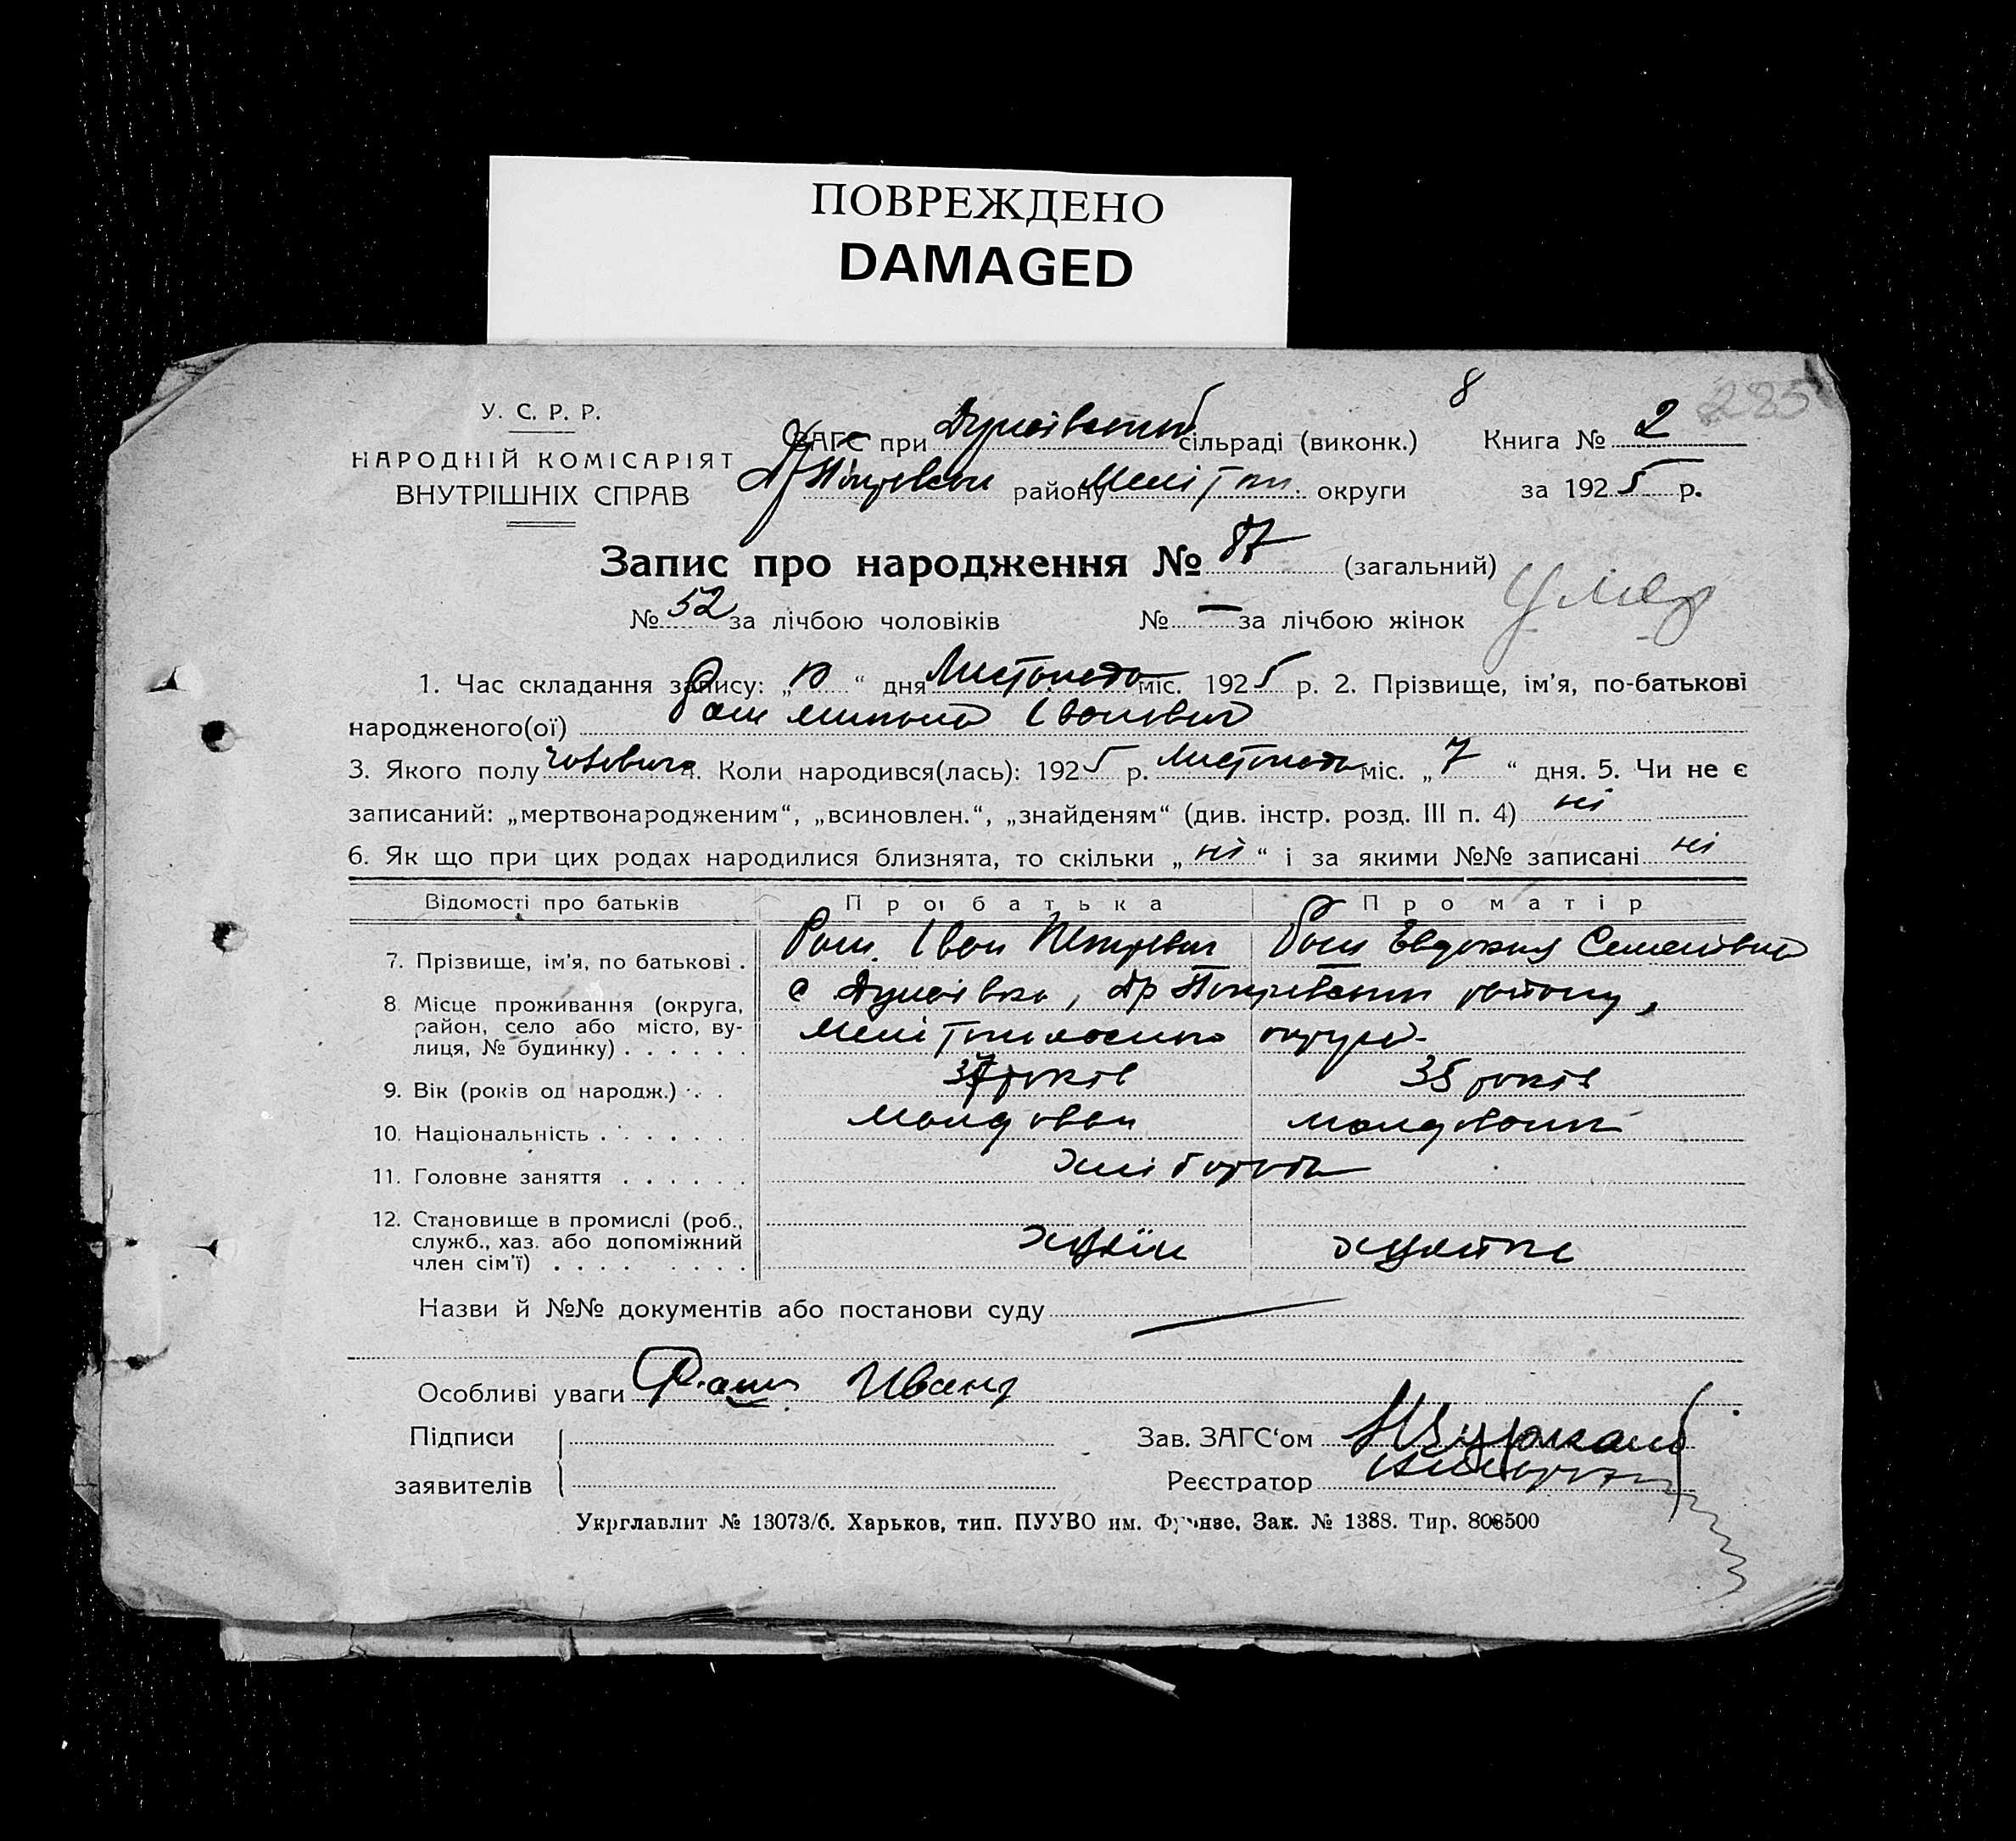 ПОВРЕЖДЕНО
DAMAGED
8
225
У. С. Р. Р.
НАРОДНІЙ КОМІСАРІЯТ
ВНУТРІШНІХ СПРАВ
ЗАГС при Дунаївській сільраді (виконк.) Книга № 2
району Мелітоп. округи за 1925 р.
Запис про народження № 87 (загальний)
№ 52 за лічбою чоловіків № — за лічбою жінок
умер
1. Час складання запису: „10“ дня Листопада міс. 1925 р. 2. Прізвище, ім'я, по-батькові
народженого(ої) Раш Микола Іванович
3. Якого полу чоловича 4. Коли народився(лась): 1925 р. Листопада міс. „7“ дня. 5. Чи не є
записаний: „мертвонародженим“, „всиновлен.“, „знайденям“ (див. інстр. розд. III п. 4) ні
6. Як що при цих родах народилися близнята, то скільки „ні“ і за якими №№ записані ні
Відомості про батьків Про батька Про матір
7. Прізвище, ім'я, по батькові . Раш Іван Петрович Раш Евдокия Семенівна
8. Місце проживання (округа, район, село або місто, вулиця, № будинку) . . . . . . с Дунаівка, Покровськ району,
Мелітопольської округи
9. Вік (років од народж.) . . 37 років 35 років
10. Національність . . . . . . . молдован молдованка
11. Головне заняття . . . . . . хліборобъ
12. Становище в промислі (роб., служб., хаз. або допоміжний член сім'ї) . . . . . . . . хазяїн хазяйка
Назви й №№ документів або постанови суду
Особливі уваги Рашъ Иванъ
Підписи
заявителів
Зав. ЗАГС'ом
Реєстратор
Укрглавлит № 13073/б. Харьков, тип. ПУУВО им. Фрунзе. Зак. № 1388. Тир. 808500